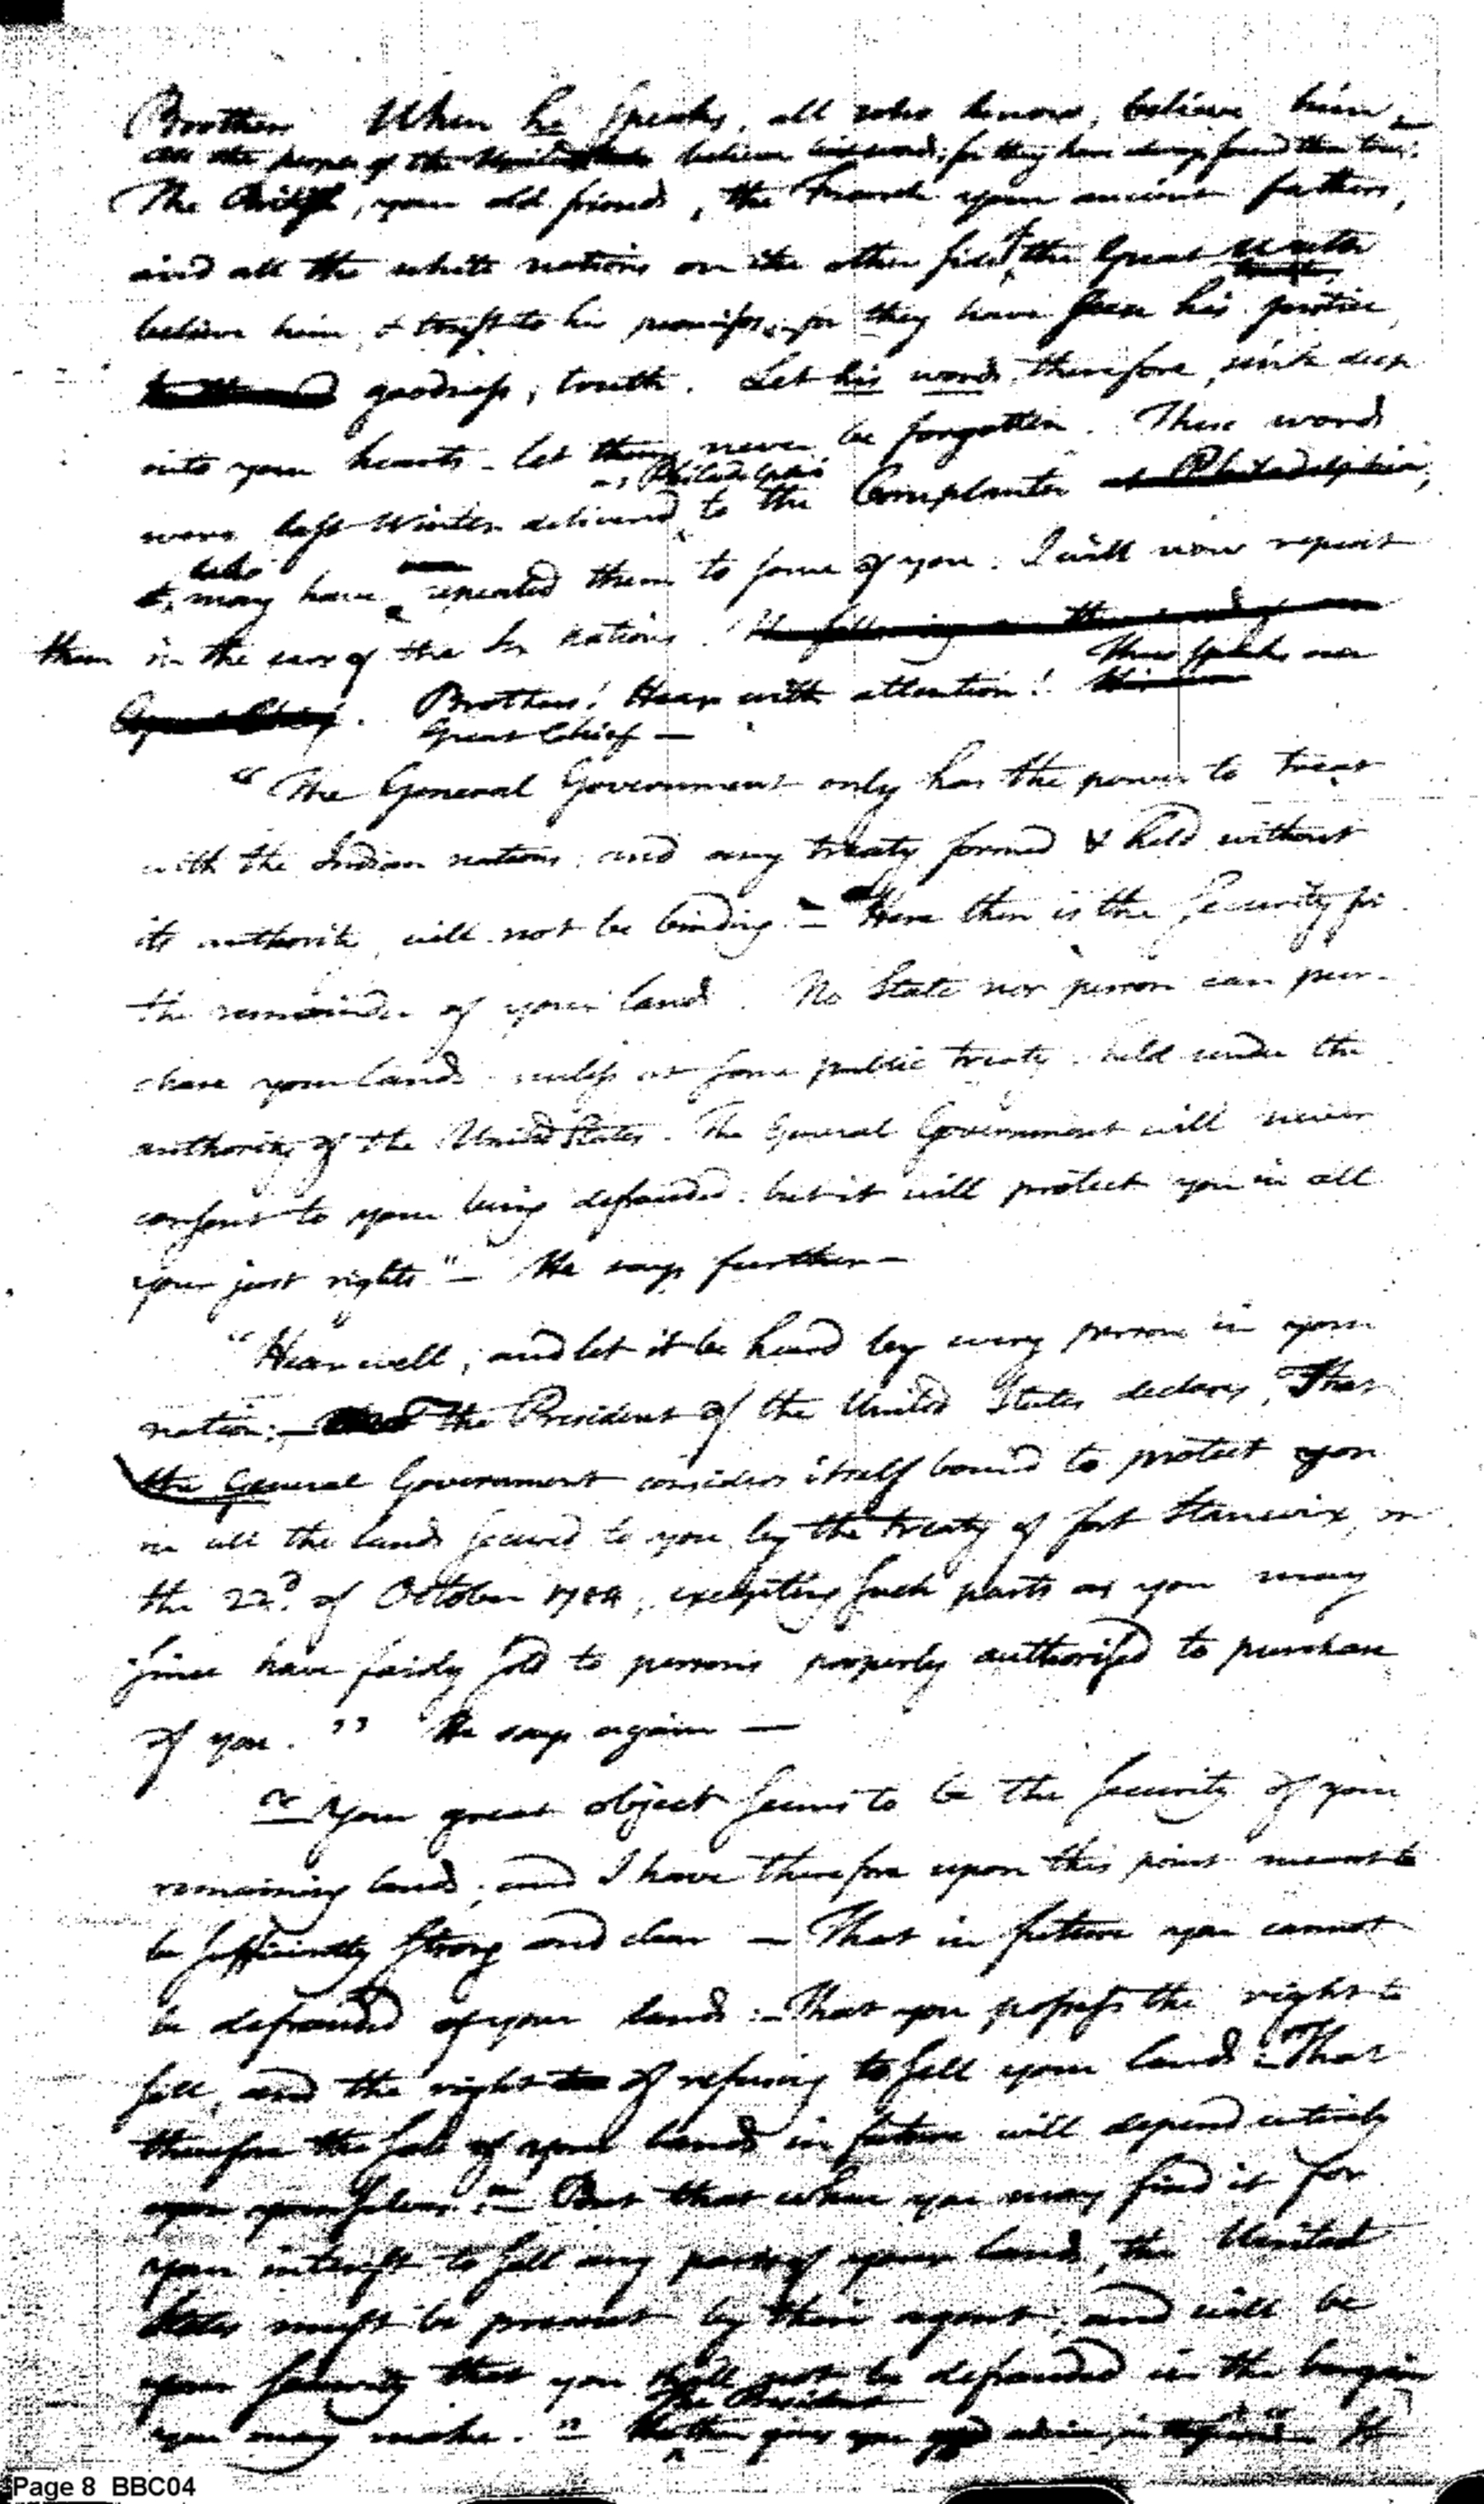 Brothers When he speaks, all who know, believe him,
all the people of the United States believe his words, for they have always found them true.
The British, your old friends, the French your ancient fathers,
and all the white nations on the other side of the Great Water
believe him, & trust to his promises, for they have seen his justice,
goodness, truth. Let his words, therefore, sink deep
into your hearts - let them never be forgotten. These words
at Philadelphia
were last Winter delivered to the Cornplanter at Philadelphia,
who
may have repeated them to some of you. I will now repeat
them in the ears of the Six nations. The following are the words of
Thus speaks our
Great Chief. Brothers! Hear with attention!
Great Chief —
"The General Government only has the power to treat
with the Indian nations, and any treaty formed & held without
its authority will not be binding — Here then is the security for
the remainder of your lands. No State nor person can pur-
chase your lands unless at some public treaty held under the
authority of the United States. The General Government will never
consent to your being defrauded, but it will protect you in all
your just rights" — He says further —
"Hear well, and let it be heard by every person in your
nation; — the President of the United States declares, That
the General Government considers itself bound to protect you
in all the lands secured to you by the treaty of fort Stanwix, on
the 22d. of October 1784, excepting such parts as you may
since have fairly sold to persons properly authorised to purchase
of you." He says again —
"Your great object seems to be the security of your
remaining lands, and I have therefore upon this point meant to
be sufficiently strong and clear — That in future you cannot
be defrauded of your lands: — That you possess the right to
sell, and the right of refusing to sell your lands: — That
therefore the sale of your lands in future will depend entirely
upon yourselves: — But that when you may find it for
your interest to sell any part of your lands, the United
States must be present by their agent, and will be
your security that you shall not be defrauded in the bargain
The President
you may make." — then gives you good advice, If
Page 8 BBC04